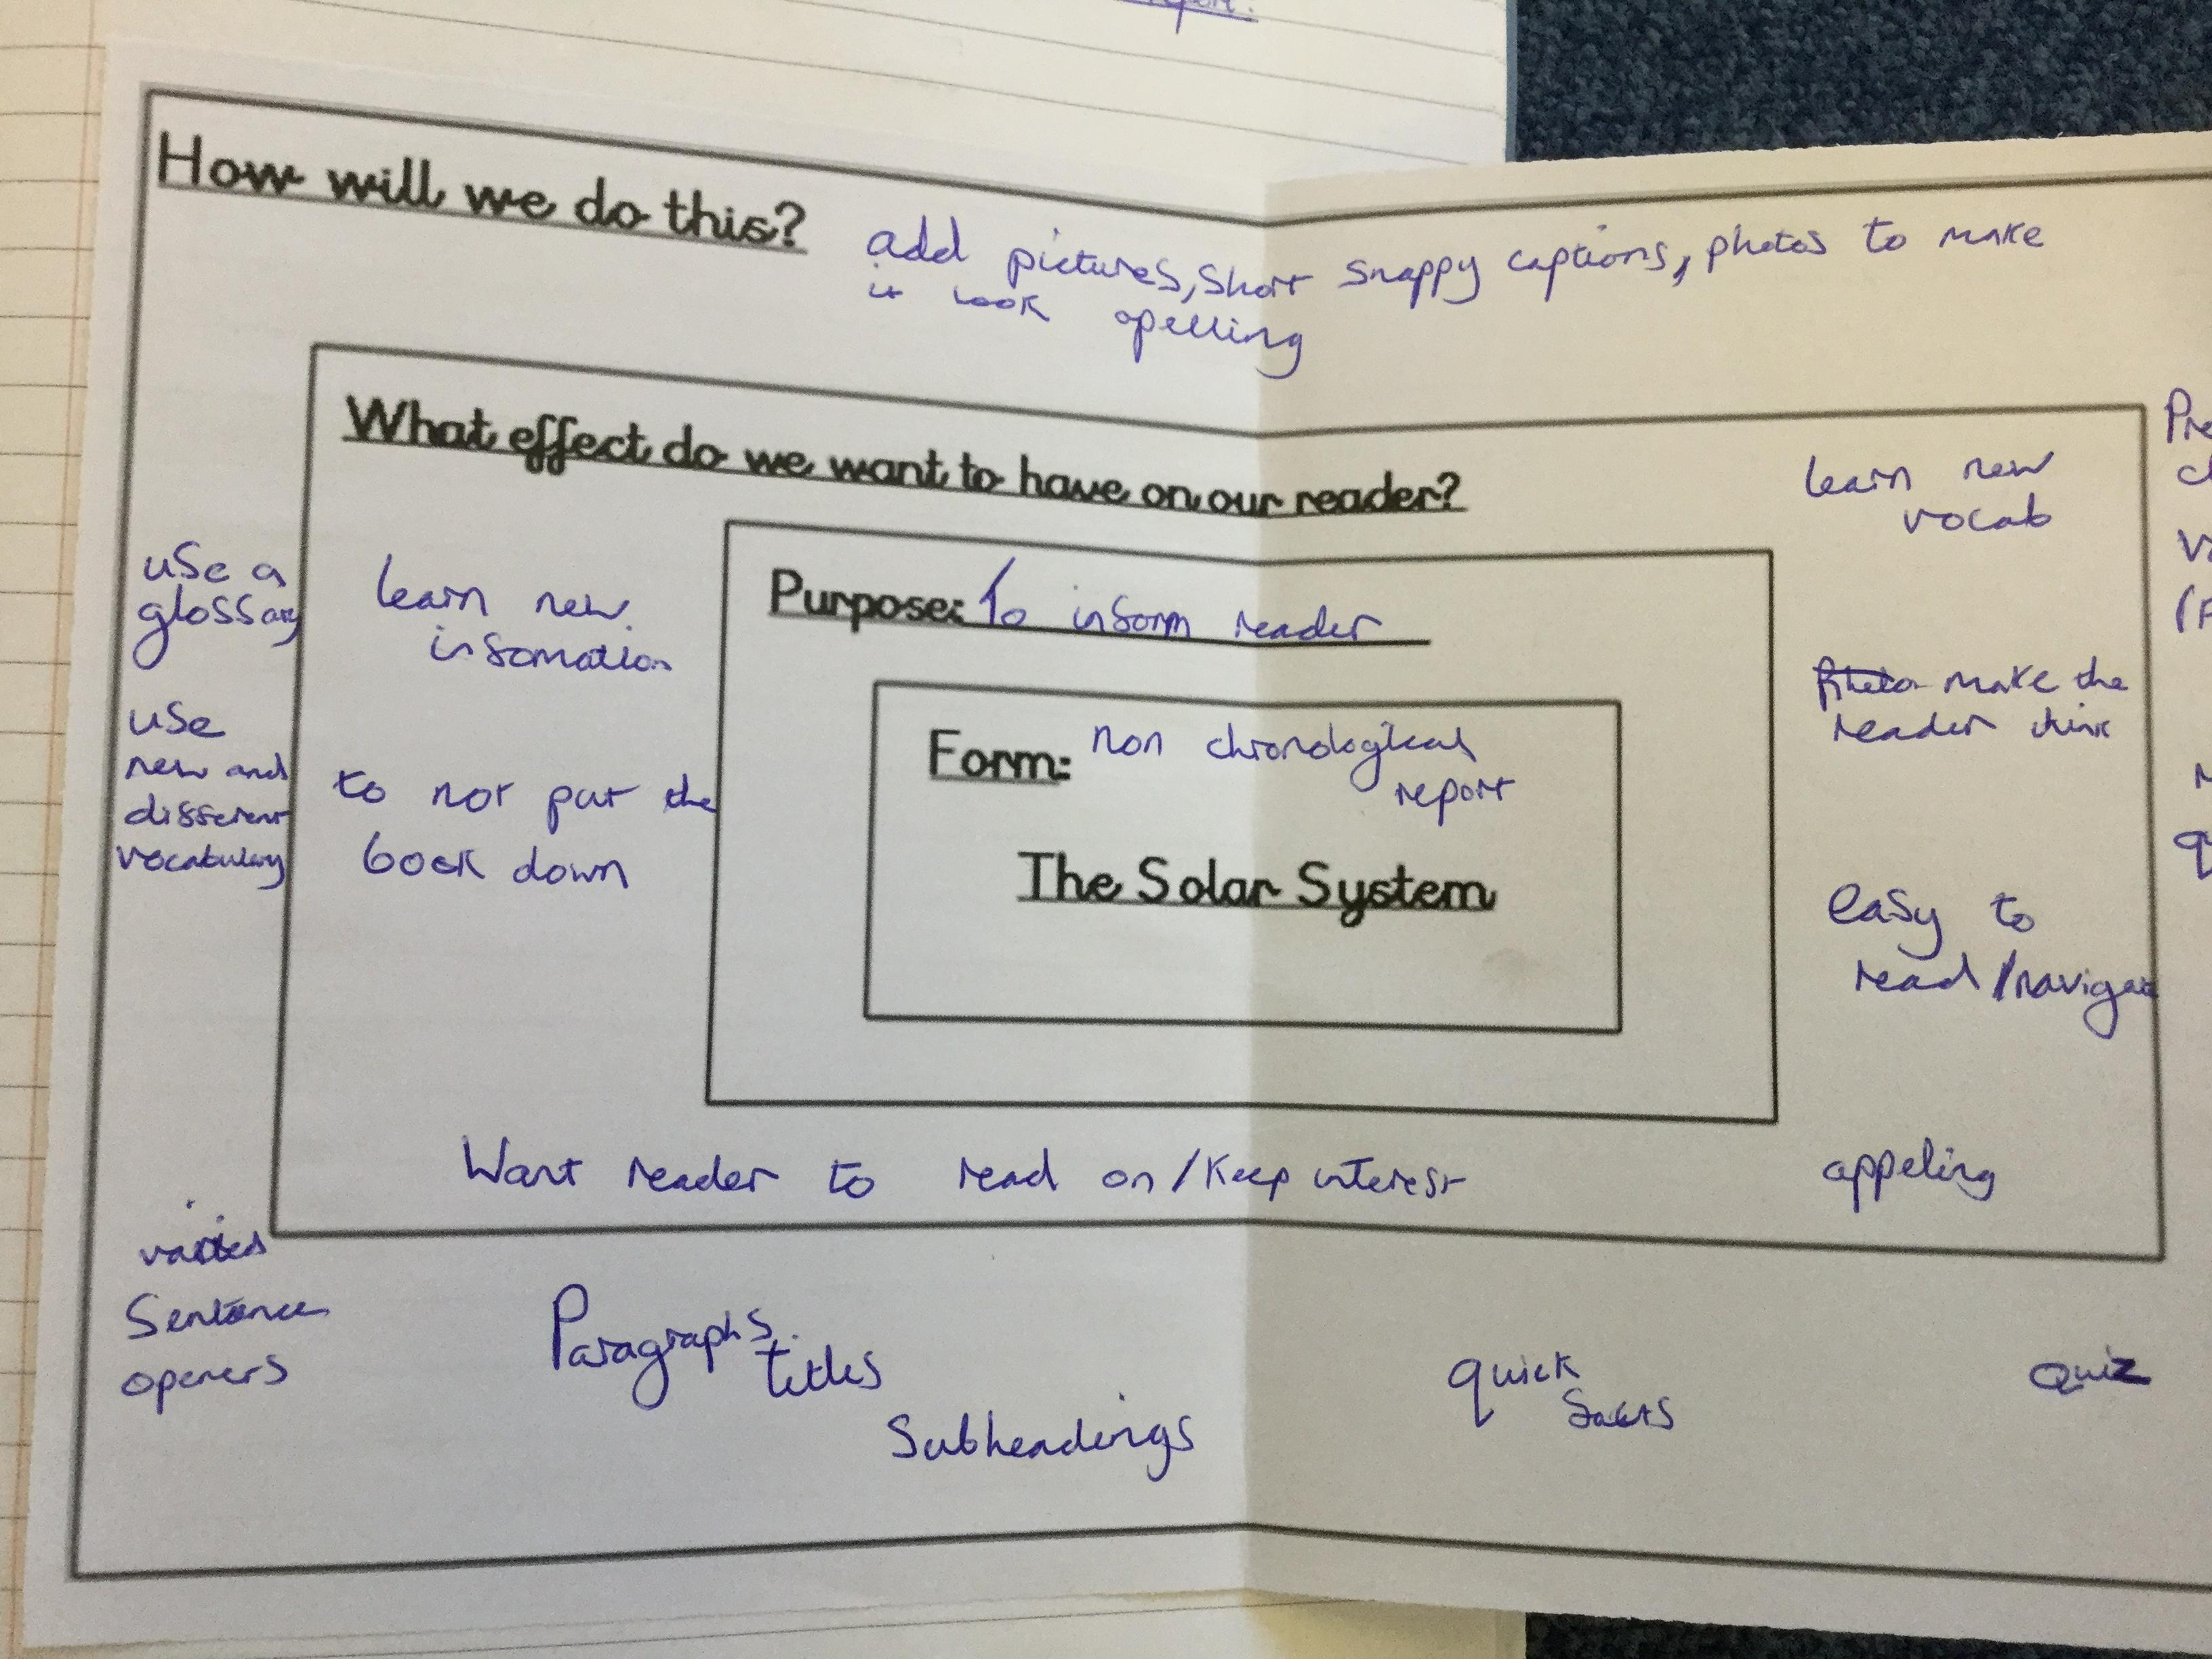 How will we do this?
add pictures, short snappy captions, photos to make
it look apelling
What effect do we want to have on our reader?
learn new
vocab
use a
glossary
learn new
insomation
Purpose: To inform reader
make the
reader think
Form: non chronological
report
The Solar System
use
new and
different
vocabulary
to not put the
book down
easy to
read/navigate
Want reader to read on/keep interest
appeling
varied
Sentence
openers
Paragraphs
titles
Subheadings
quick
facts
Quiz